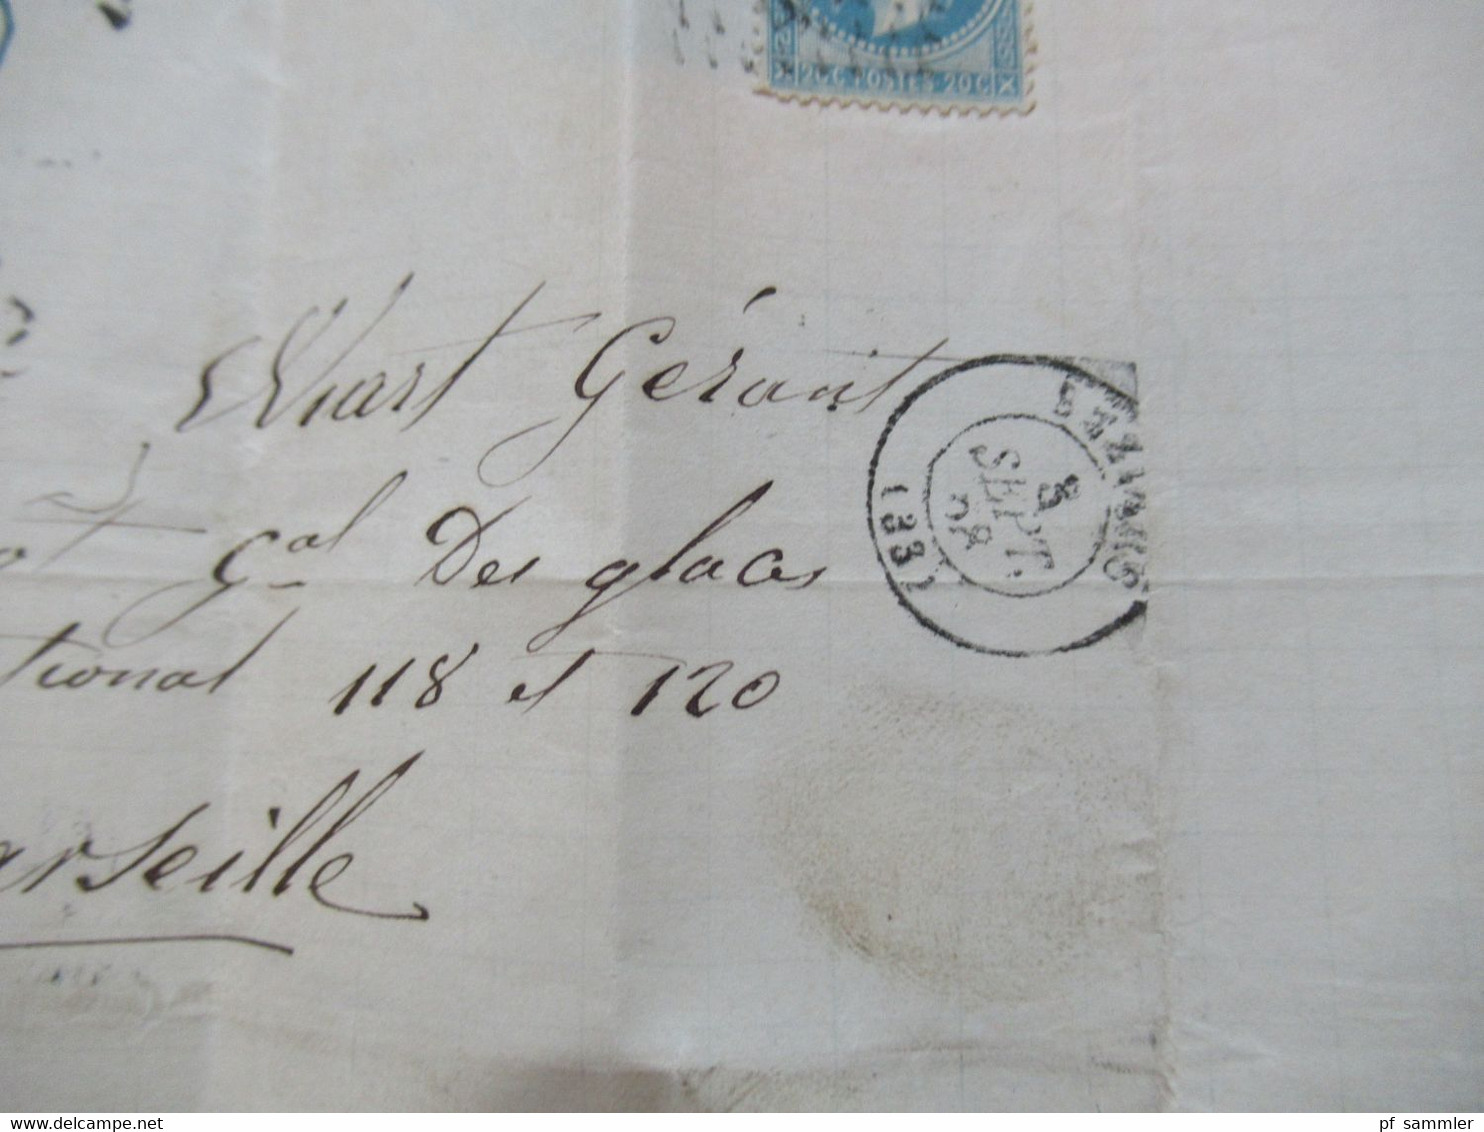 20C POSTES 20C
Wiart Gérant
Gal Des glaces
tional 118 et 120
arseille
BEZIERS
8
SEPT.
68
(33)
www.delcampe.net
pf sammler